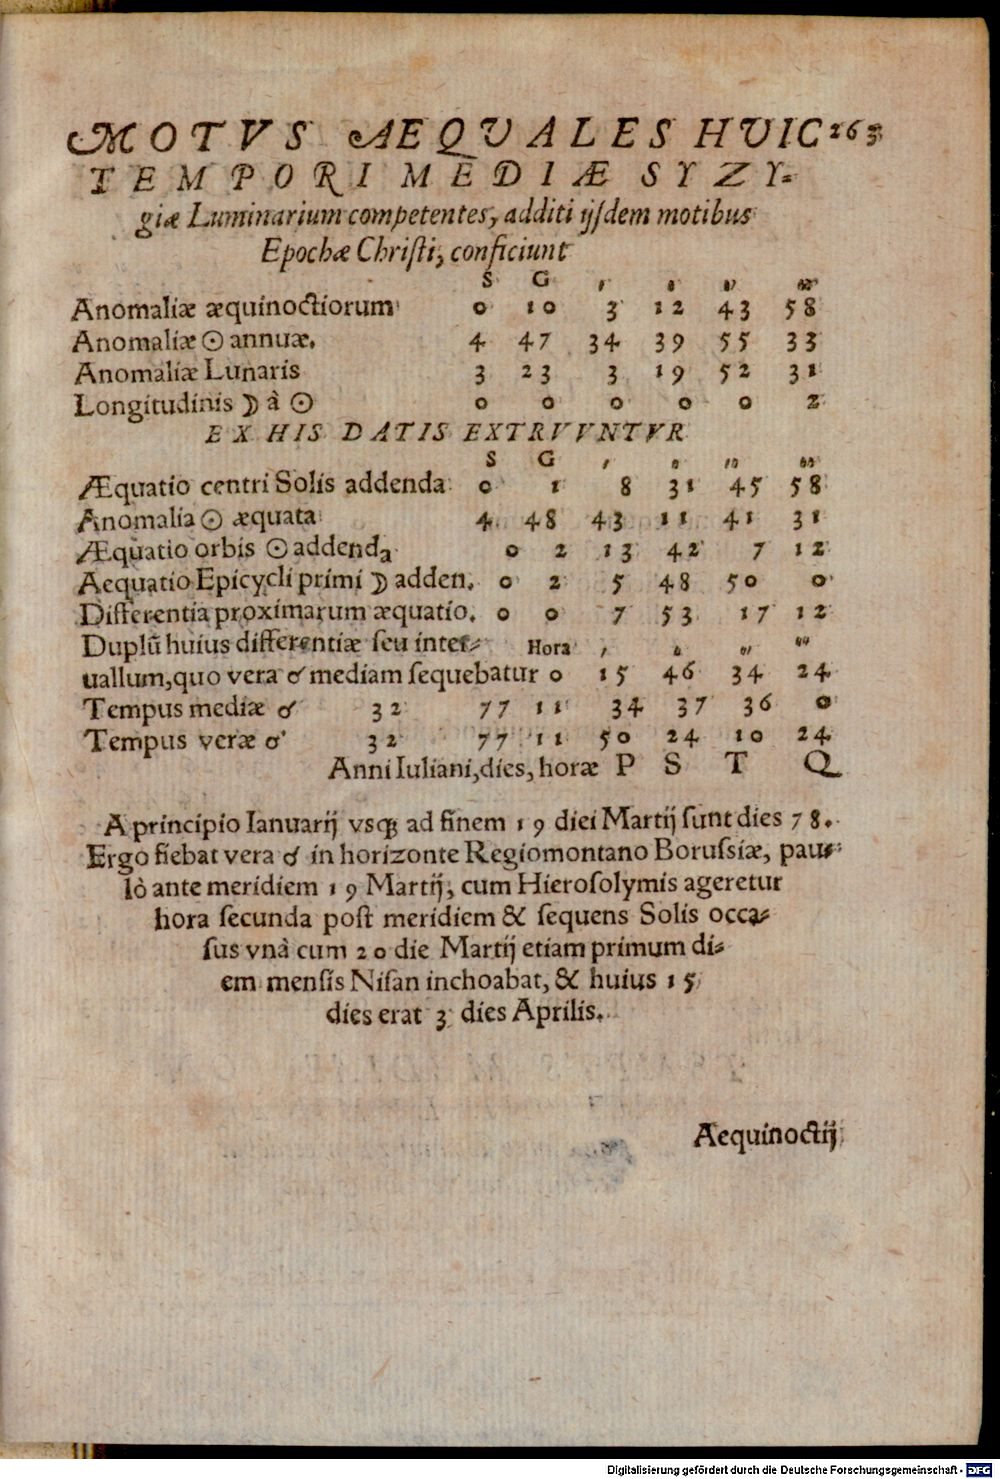 MOTVS AEQVALES HVIC 263
TEMPORI MEDIÆ SYZY-
giæ Luminarium competentes, additi ijsdem motibus
Epochæ Christi, conficiunt
S G , „ ‚‚‚ ‚‚‚‚
Anomaliæ æquinoctiorum 0 10 3 12 43 58
Anomaliæ ☉ annuæ. 4 47 34 39 55 33
Anomaliæ Lunaris 3 23 3 19 52 31
Longitudinis ☽ à ☉ 0 0 0 0 0 2
EX HIS DATIS EXTRVVNTVR
S G , „ ‚‚‚ ‚‚‚‚
Æquatio centri Solis addenda 0 1 8 31 45 58
Anomalia ☉ æquata 4 48 43 11 41 31
Æquatio orbis ☉ addenda 0 2 13 42 7 12
Aequatio Epicycli primi ☽ adden. 0 2 5 48 50 0
Differentia proximarum æquatio. 0 0 7 53 17 12
Duplũ huius differentiæ seu inter- Hora , „ ‚‚‚ ‚‚‚‚
uallum, quo vera ☌ mediam sequebatur 0 15 46 34 24
Tempus mediæ ☌ 32 77 11 34 37 36 0
Tempus veræ ☌ 32 77 11 50 24 10 24
Anni Iuliani, dies, horæ P S T Q
A principio Ianuarij vsq; ad finem 19 diei Martij sunt dies 78.
Ergo fiebat vera ☌ in horizonte Regiomontano Borussiæ, pau-
lò ante meridiem 19 Martij, cum Hierosolymis ageretur
hora secunda post meridiem & sequens Solis occa-
sus vnà cum 20 die Martij etiam primum di-
em mensis Nisan inchoabat, & huius 15
dies erat 3 dies Aprilis.
Aequinoctij
Digitalisierung gefördert durch die Deutsche Forschungsgemeinschaft - DFG